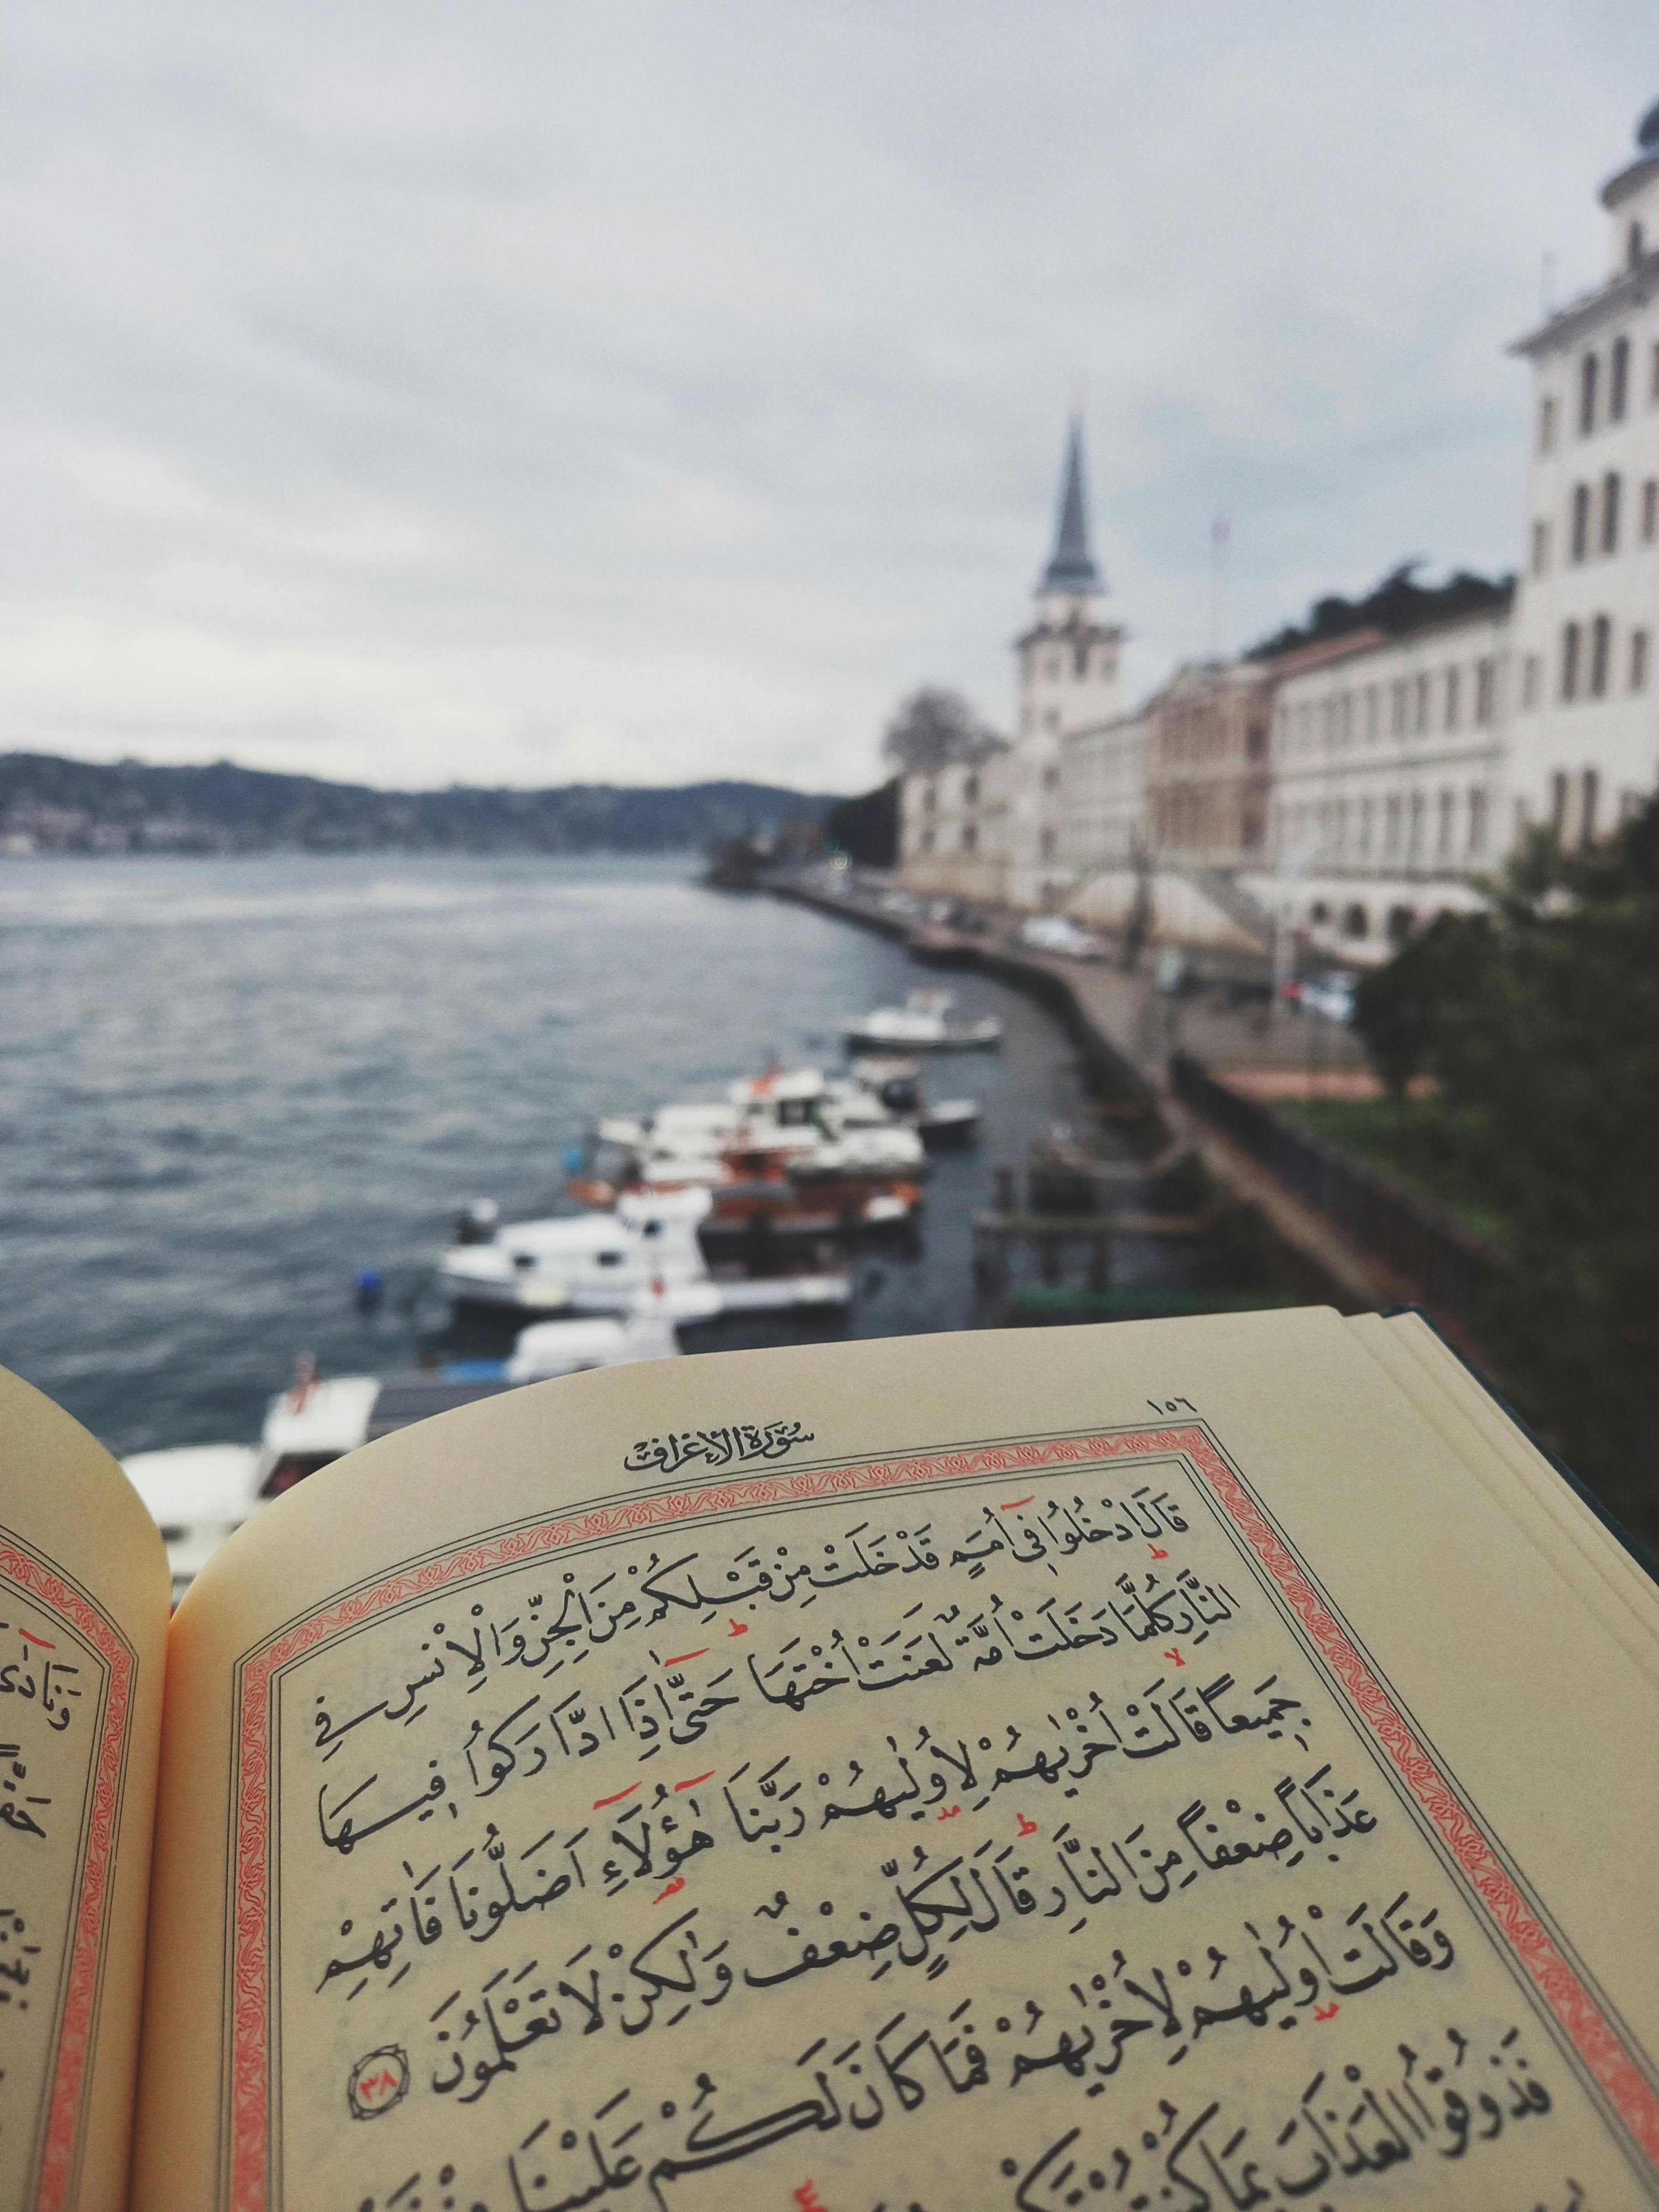 ١٥٦
سُورَةُ الْأَعْرَافِ
قَالَ ادْخُلُوا فِٓي اُمَمٍ قَدْ خَلَتْ مِنْ قَبْلِكُمْ مِنَ الْجِنِّ وَالْاِنْسِ فِي
النَّارِ كُلَّمَا دَخَلَتْ اُمَّةٌ لَعَنَتْ اُخْتَهَا حَتّٰٓى اِذَا ادَّارَكُوا فِيهَا
جَمِيعًا قَالَتْ اُخْرٰيهُمْ لِاُولٰيهُمْ رَبَّنَا هٰٓؤُلَٓاءِ اَضَلُّونَا فَاٰتِهِمْ
عَذَابًا ضِعْفًا مِنَ النَّارِ قَالَ لِكُلٍّ ضِعْفٌ وَلٰكِنْ لَا تَعْلَمُونَ ٣٨
وَقَالَتْ اُولٰيهُمْ لِاُخْرٰيهُمْ فَمَا كَانَ لَكُمْ عَلَيْنَا
فَذُوقُوا الْعَذَابَ بِمَا كُنْتُمْ